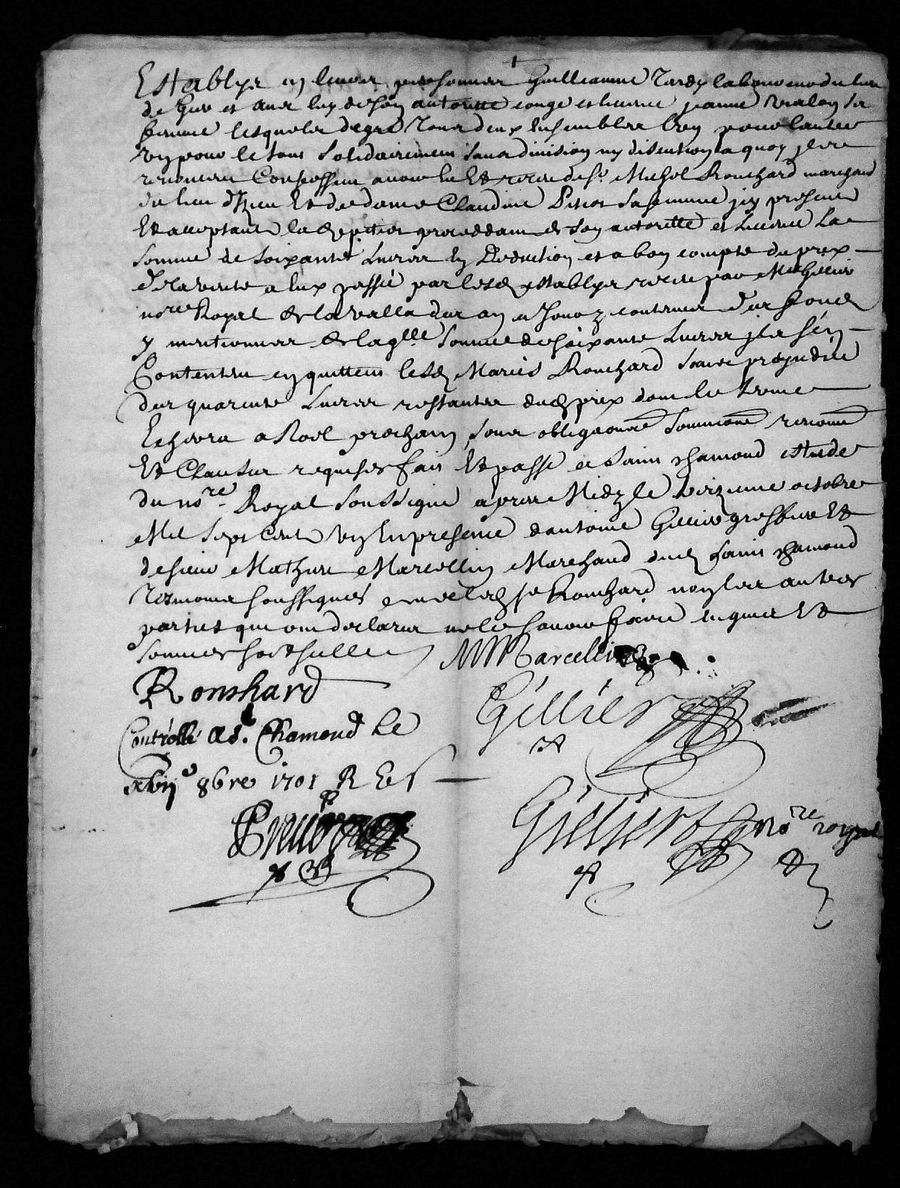 Establys en leurs personnes Guilleaume Tardy laboureur du lieu
de et avec luy de son autoritté congé et licence Jeanne sa
femme lesquels de gré tous deux ensembles l'un pour l'autre
un pour le tout solidairement sans division ny discution a quoy ils
renoncent Confessent avoir heu et receu de sr Michel Ronchard marchand
du lieu d'Izieu Et de dame Claudine sa femme icy presents
Et acceptants la procedant de son autoritté et licence La
somme de soixante Livres En Deduction et a bon compte du prix
de la vente a eux passé par lesd establys receue par Me Gillier
nore Royal de Lavalla du an et jour y contenus des fonds
y mentionnés de laqlle somme de soixante Livres ils se
Contentent en quittent lesd Mariés Ronchard sans prejudice
des quarente Livres restantes dud prix dont le terme
Echera a Noel prochain, sous obligations soumissions renon
Et Clauses requises fait Et passé a saint chamond estude
du nore Royal soussigné apres Midy le treizieme octobre
Mil sept Cent un En presence d'antoine Gillier greffier Et
de sieur Mathieu Marcellin Marchand dud saint chamond
tesmoins soussignés avec led sr Ronchard non les autres
parties qui ont declaré ne le scavoir faire enquis Et
sommés
MMarcellin
Ronchard
Gillier
Controllé a St. Chamond Le
8bre 1701 R
Gillier nore royal